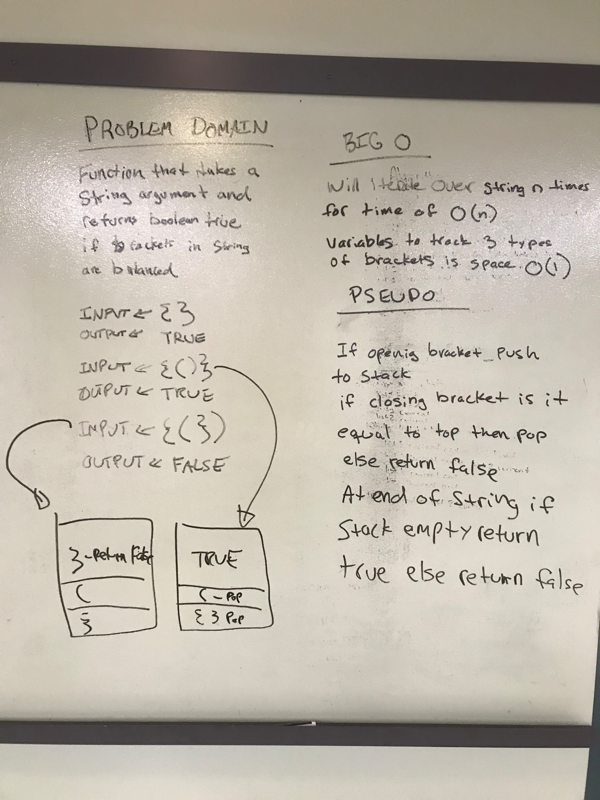 PROBLEM DOMAIN
Function that takes a
String argument and
returns boolean true
if brackets in String
are balanced
INPUT ← { }
OUTPUT ← TRUE
INPUT ← {()}
OUTPUT ← TRUE
INPUT ← {(})
OUTPUT ← FALSE
} - return False
(
{
TRUE
( - POP
{ } POP
BIG O
Will iterate over string n times
for time of O(n)
Variables to track 3 types
of brackets is space O(1)
PSEUDO
If openig bracket push
to Stack
if closing bracket is it
equal to top then pop
else return false
At end of String if
Stack empty return
true else return false